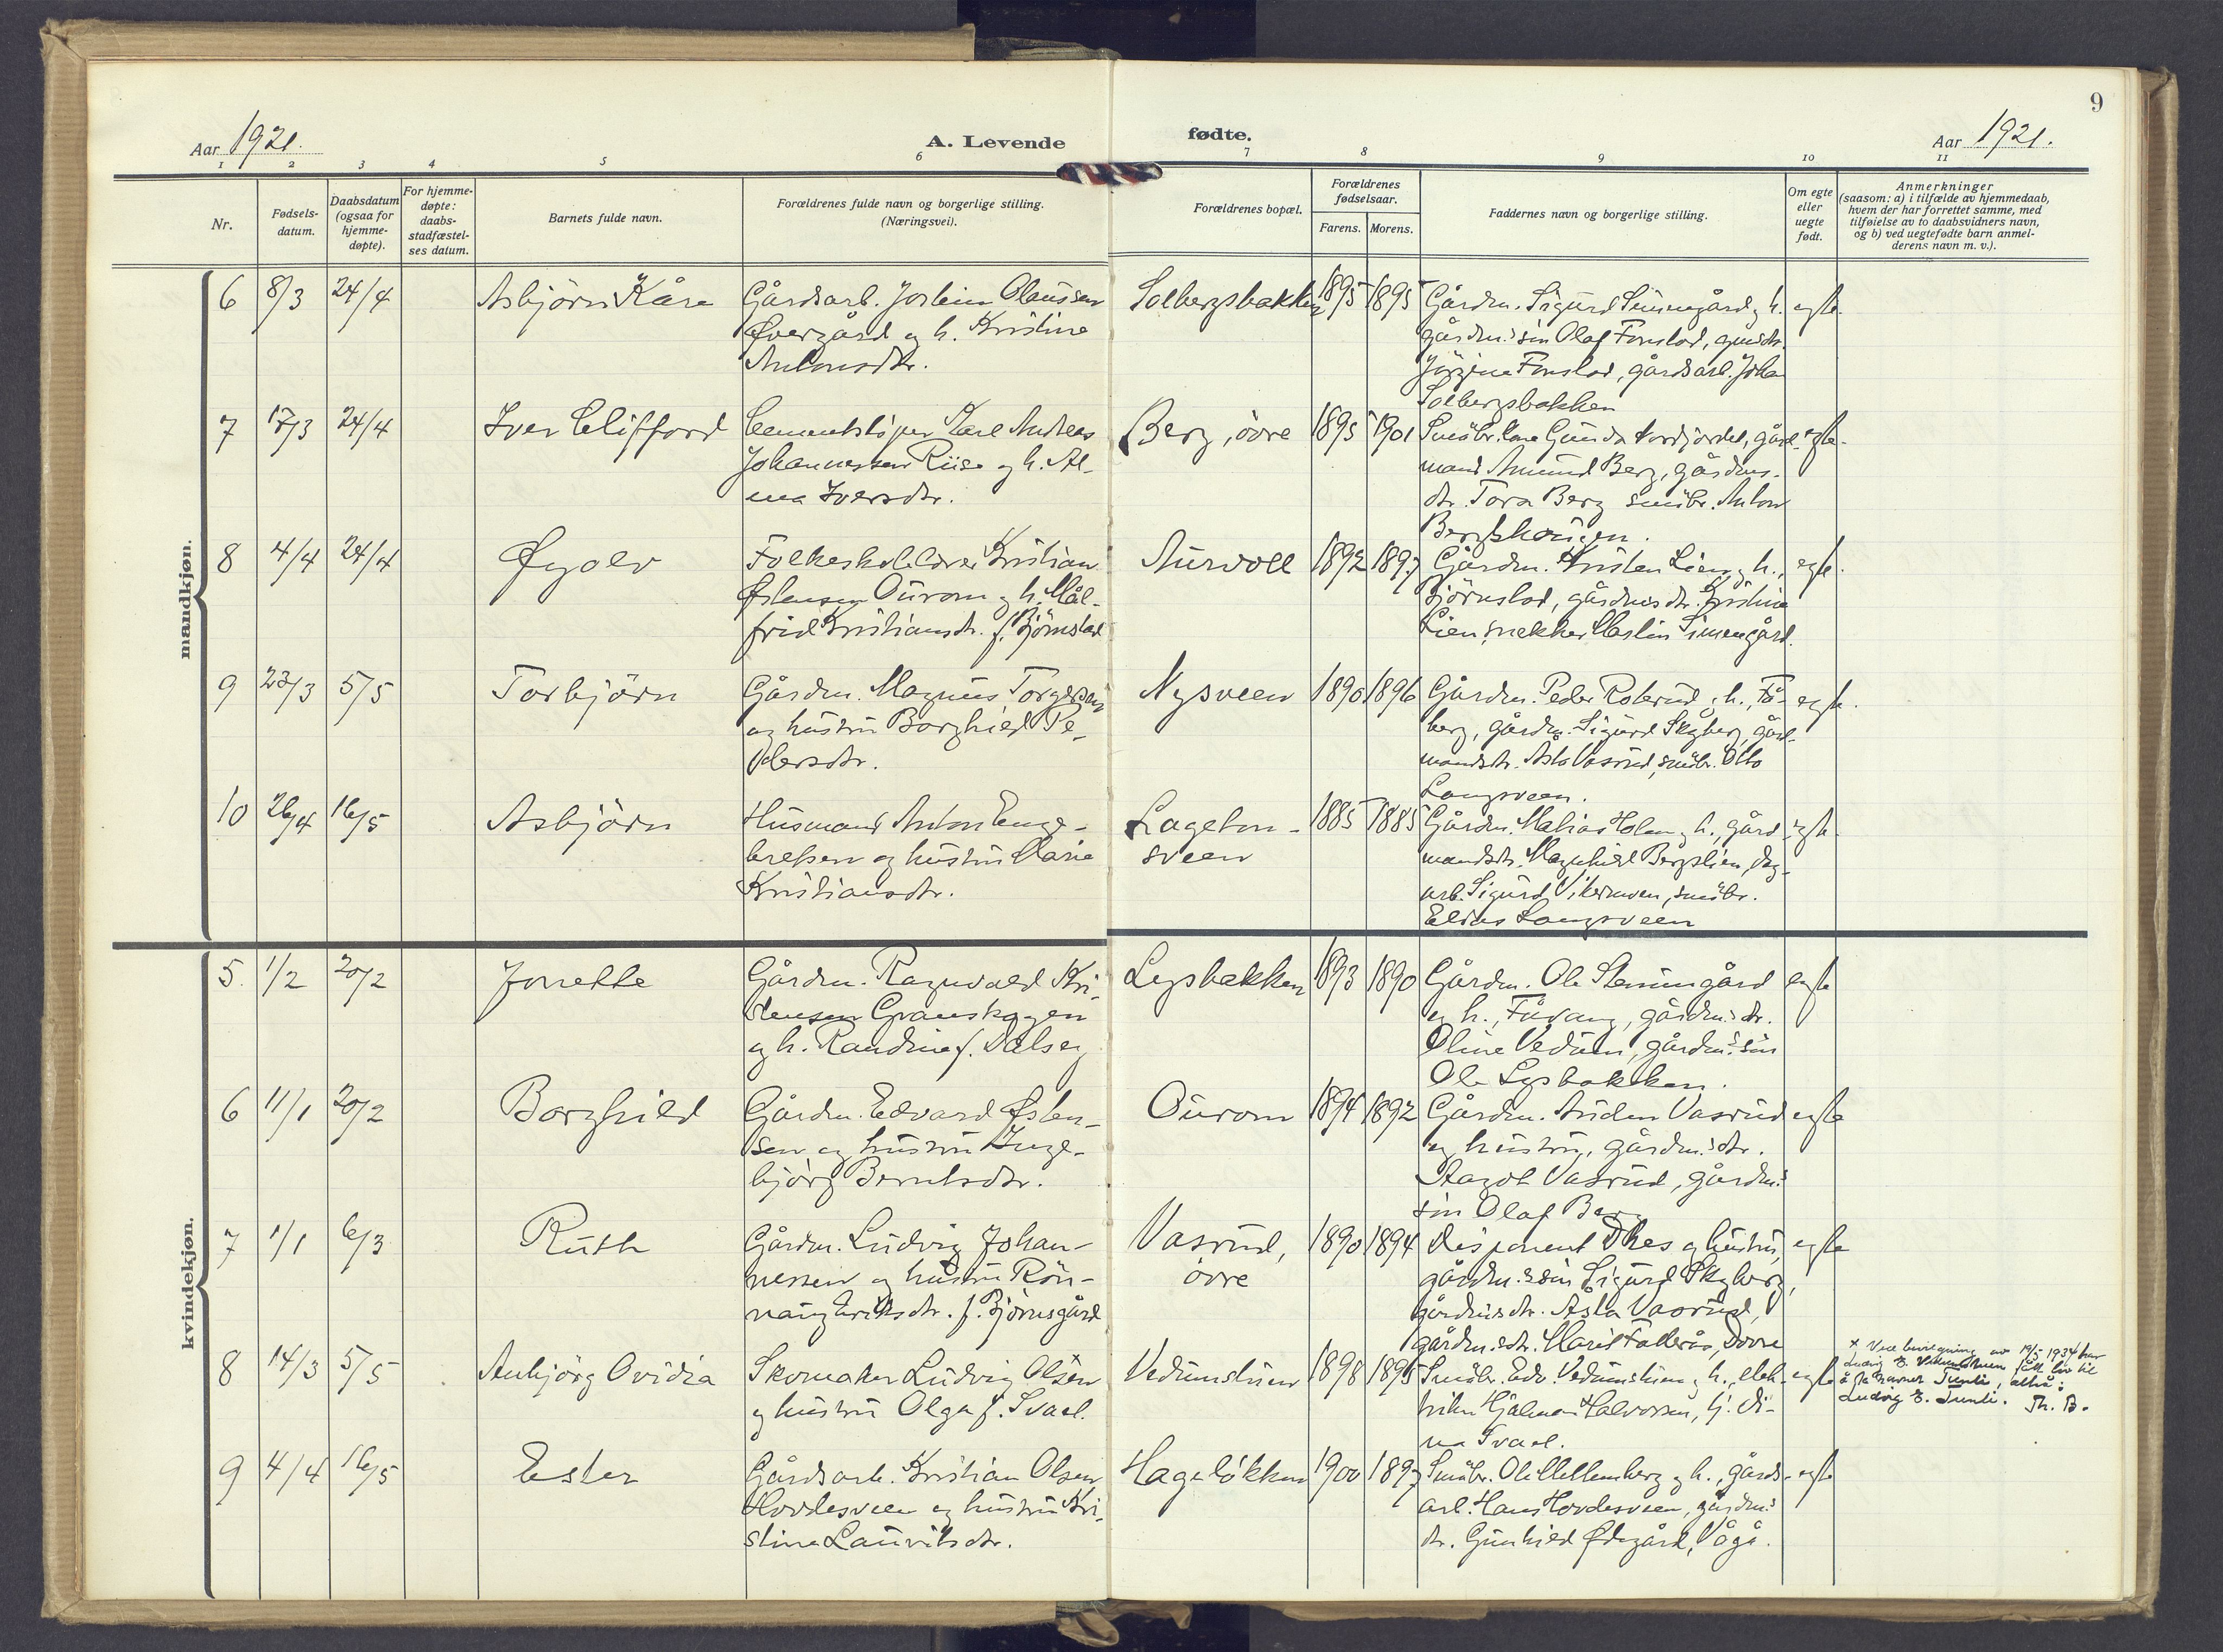 9
Aar 1921.
A. Levende
fødte.
Aar 1921.
1 2 3 4 5 6 7 8 9 10 11
Nr.
Fødsels-
datum.
Daabsdatum
(ogsaa for
hjemme-
døpte).
For hjemme-
døpte:
daabs-
stadfæstel-
ses datum.
Barnets fulde navn.
Forældrenes fulde navn og borgerlige stilling.
(Næringsvei).
Forældrenes bopæl.
Forældrenes
fødselsaar.
Farens. Morens.
Faddernes navn og borgerlige stilling.
Om egte
eller
uegte
født.
Anmerkninger
(saasom: a) i tilfælde av hjemmedaab,
hvem der har forrettet samme, med
tilføielse av to daabsvidners navn,
og b) ved uegtefødte barn anmel-
derens navn m. v.).
mandkjøn.
6 8/3 24/4 Asbjörn Kåre
Gårdsarb. Jostein Olaussen
Øvergård og h. Kristine
Antonsdtr.
Solbergsbakken 1895 1895
Gårdm. Sigurd Simengård og h.
gårdm.s sön Olaf Fonstad, gmsdtr.
Jörgine Fonstad, gårdsarb. Johan
Solbergsbakken
egte.
7 17/3 24/4 Iver Clifford
Cementstöper Karl Andreas
Johannessen Riise og h. Al-
ma Iversdtr.
Berg, övre 1895 1901
Småbr.kone Gunda gård-
mand Amund Berg, gårdms.
dtr. Tora Berg småbr. Anton
Bergshaugen.
egte.
8 4/4 24/4 Øyolv
Folkeskolelærer Kristian
Østensen Ourom og h. Mål-
frid Kristiansdtr. f. Björnstad
Aurvoll 1892 1897
Gårdm. Kristen Lien og h.,
Björnstad, gårdmsdtr. Kristine
Lien, snekker Martin Simengård.
egte.
9 23/3 5/5 Torbjörn
Gårdm. Magnus Torgersen
og hustru Borghild Pe-
dersdtr.
Nysveen 1890 1896
Gårdm. Peder Roterud og h., Få-
berg, gårdm. Sigurd Skyberg, gård-
mandsdtr. Asta Vasrud, småbr. Otto
Langsveen.
egte.
10 26/4 16/5 Asbjörn
Husmand Anton Enge-
bretsen og hustru Marie
Kristiansdtr.
Lageton-
sveen
1885 1885
Gårdm. Matias Holen og h., gård
mandsdtr. Magnhild Bergslien, dag-
arb. Sigurd småbr.
Elias Langsveen
egte.
kvindekjøn.
5. 1/2 20/2 Jorette
Gårdm. Ragnvald Kri-
stensen Granskogen
og h. Randine f. Dalseg
Lysbakken 1893 1890
Gårdm. Ole Steinsgård
og h., Fåvang, gårdm.s dtr.
Oline Vedum, gårdm.s sön
Ole Lysbakken.
egte
6 11/1 20/2 Borghild
Gårdm. Edvard Østen-
sen og hustru Inge-
björg Berntsdtr.
Ourom 1894 1892
Gårdm. Anden Vasrud
og hustru, gårdm.s dtr.
Aagot Vasrud, gårdm.s
sön Olaf Berg
egte
7 1/1 6/3 Ruth
Gårdm. Ludvig Johan-
nessen og hustru Rön-
naug Eriksdtr. f. Björnsgård
Vasrud,
övre
1890 1894
Disponent og hustru,
gårdm.s sön Sigurd Skyberg,
gårdmsdtr. Asta Vasrud,
gårdmsdtr. Marit Dovre
egte
8 14/3 5/5 Anbjörg Ovidia
Skomaker Ludvig Olsen
og hustru Olga f. Svael.
Vedumshem 1898 1895
Småbr. Edv. Vedumshem og h., elek-
triker Hjalmar Halvorsen, tj. Di-
na Svael.
egte
x Ved bevilgning av 19/5-1934 har
Ludvig E. fått lov til
å ta navnet Tunli, altså:
Ludvig E. Tunli. Th. B.
9 4/4 16/5 Ester
Gårdsarb. Kristian Olsen
Hovdesveen og hustru Kri-
stine Lauritsdtr.
Hagelökken 1900 1897
Småbr. Ole og h., gårds-
arb. Hans Hovdesveen, gårdm.s
dtr. Gunhild Ødegård, Vågå.
egte